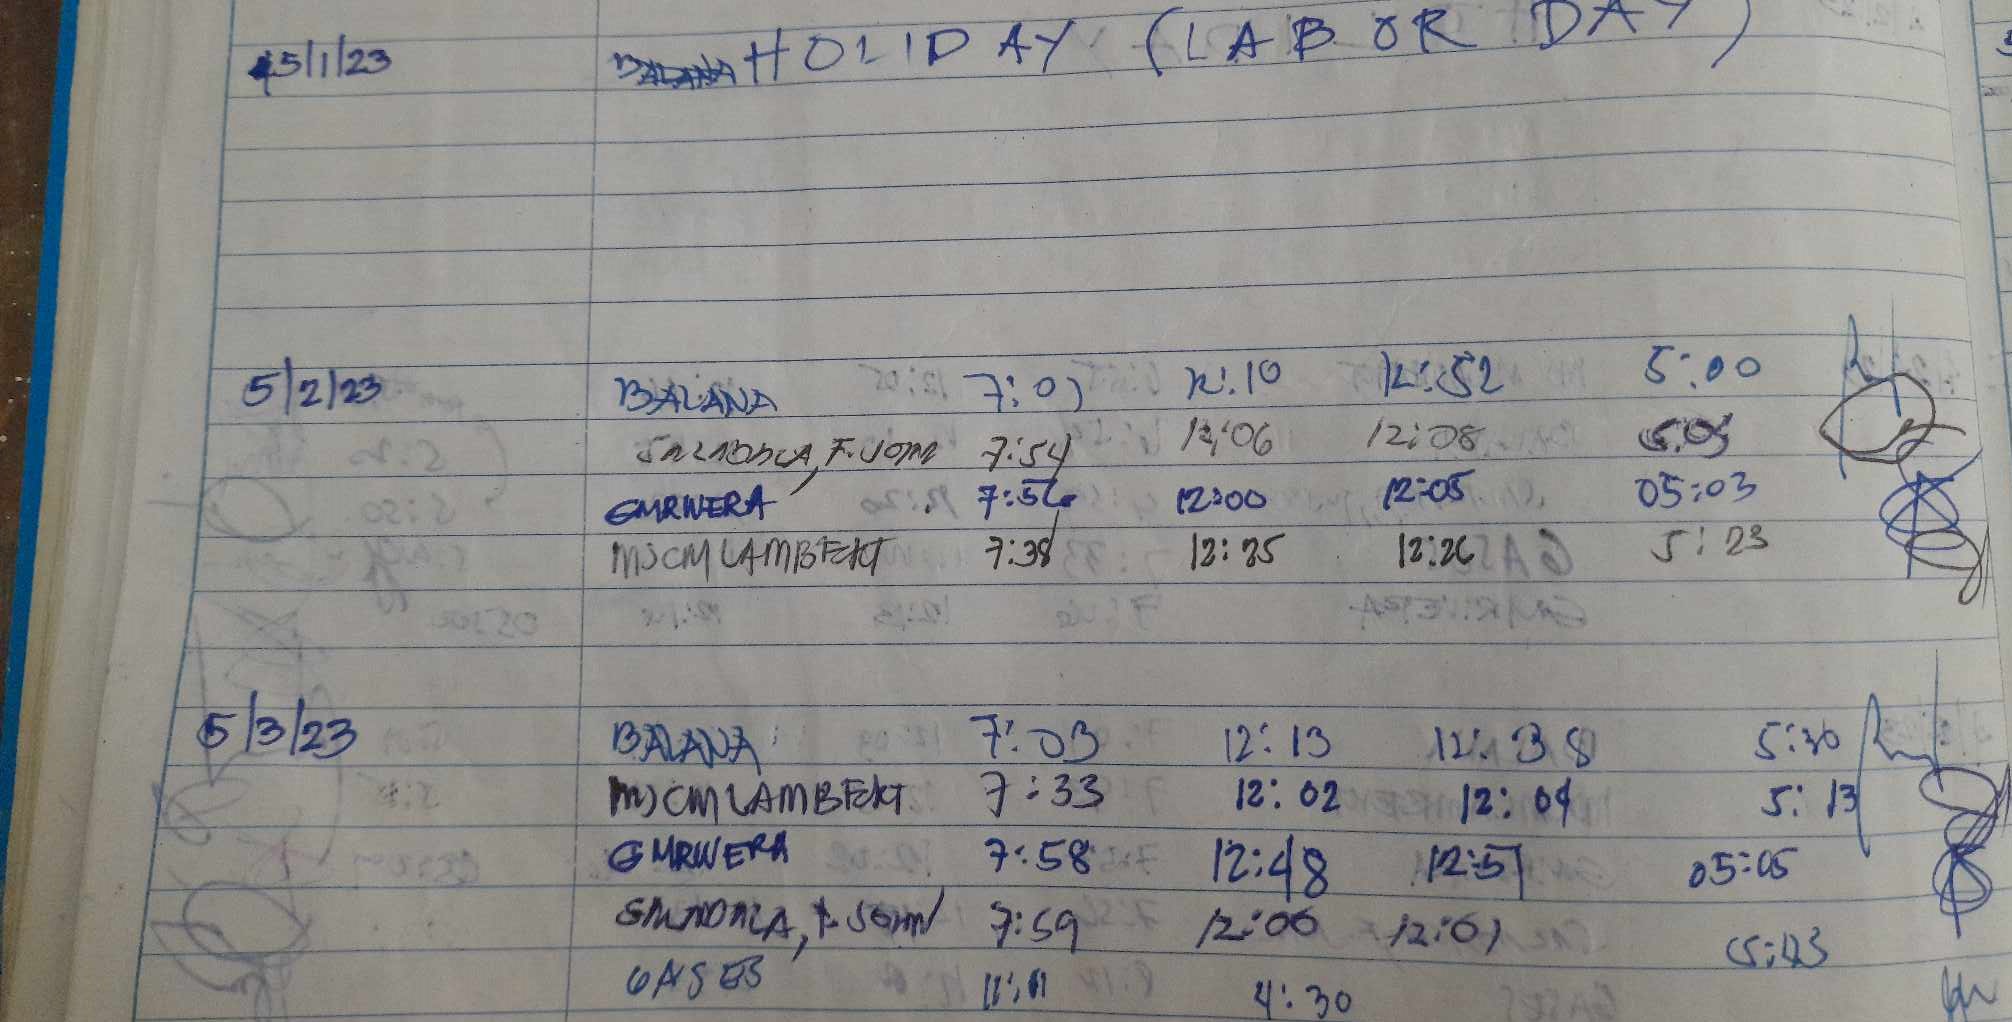 5/1/23 HOLIDAY (LABOR DAY)
5/2/23 BALANA 7:07 12:10 12:52 5:00
7:54 12:06 12:08 5:05
GMRIVERA 7:56 12:00 12:05 05:03
MJCM LAMBERT 7:38 12:25 12:26 5:23
5/3/23 BALANA 7:03 12:13 12:38 5:30
MJCM LAMBERT 7:33 12:02 12:04 5:13
GMRIVERA 7:58 12:48 12:51 05:05
7:59 12:00 12:01 5:43
GASES 11:11 4:30